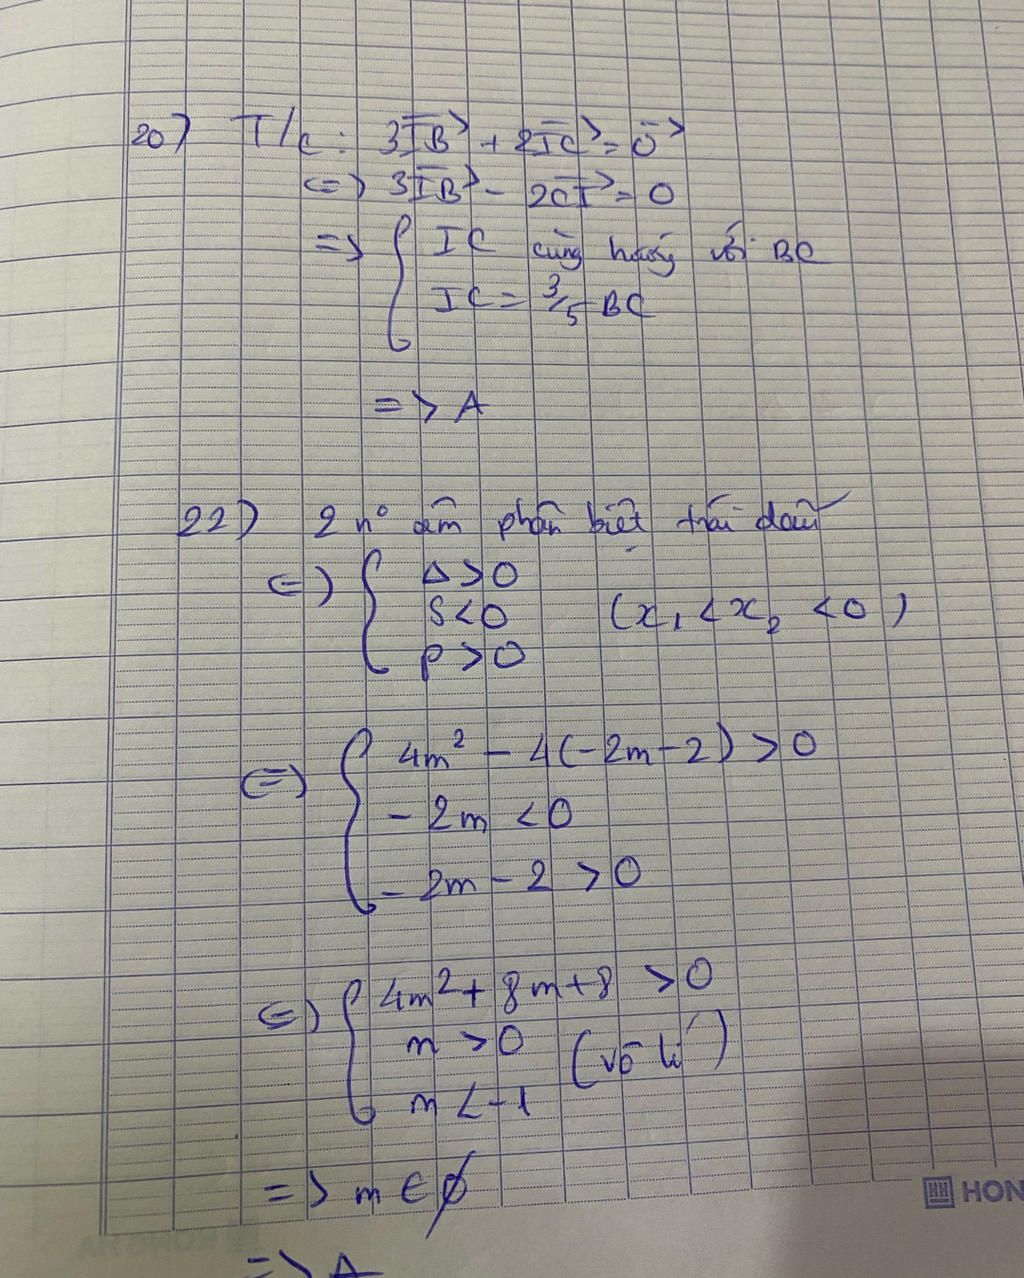 20) T/c: 3IB→ + 2IC→ = 0→
<=> 3IB→ - 2CI→ = 0
=> { IC cùng hướng với BC
IC = 3/5 BC
=> A
22) 2 n° âm phân biệt trái dấu
<=> { Δ > 0
S < 0 (x₁ < x₂ < 0)
P > 0
<=> { 4m² - 4(-2m-2) > 0
- 2m < 0
- 2m - 2 > 0
<=> { 4m² + 8m + 8 > 0
m > 0 (vô lí)
m < -1
=> m ∈ ∅
=> A
HON